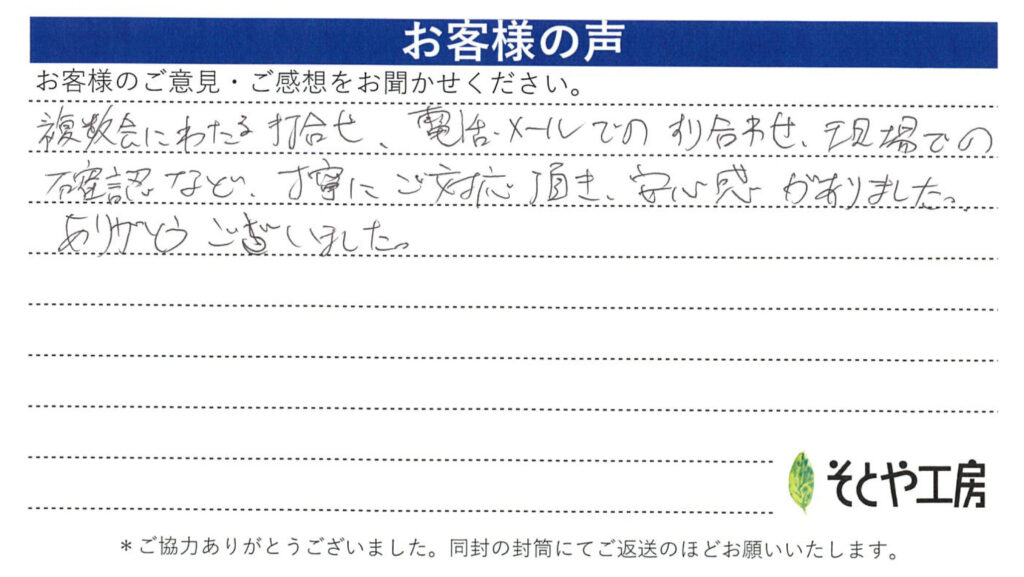 お客様の声
お客様のご意見・ご感想をお聞かせください。
複数会にわたる打合せ、電話・メールでのすり合わせ、現場での
確認など、丁寧にご対応頂き、安心感がありました。
ありがとうございました。
そとや工房
＊ご協力ありがとうございました。同封の封筒にてご返送のほどお願いいたします。